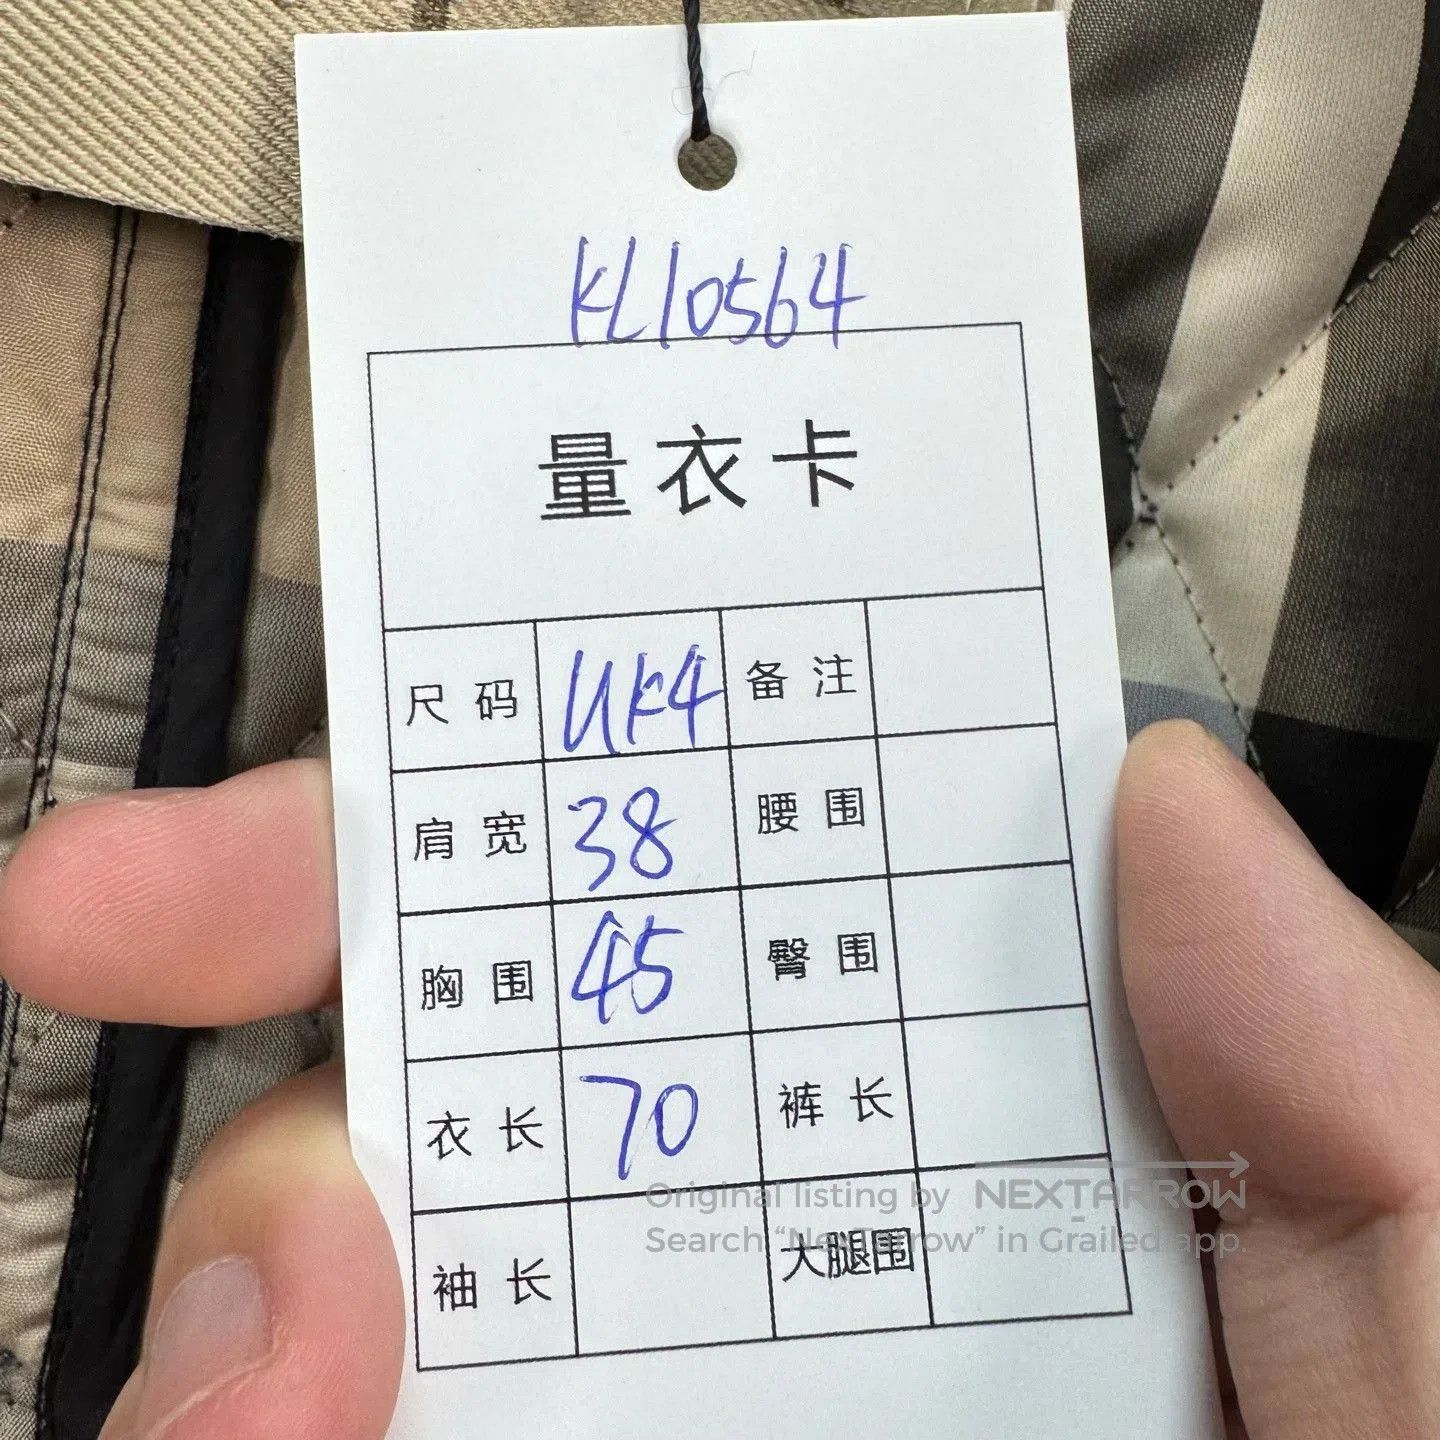 KL10564
量衣卡
尺码 UK4 备注
肩宽 38 腰围
胸围 45 臀围
衣长 70 裤长
袖长 大腿围
Original listing by NEXTARROW
Search “NexTarrow” in Grailed app.